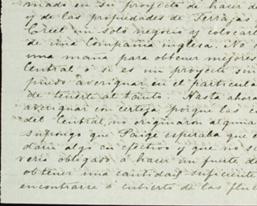 mado en su proyecto de hacer de
y de las propiedades de Terrazas
Creel un solo negocio y colocarl
de una Compañia inglesa. No
una maña para obtener mejores
Central ó si es un proyecto sin
pude averiguar en el particular
de tendrá al tanto. Hasta ahora
averiguar con certeza porque las
del Central, no originaron alguna
supongo que Paige esperaba que
daría algo en efectivo y que no se
vería obligado á hacer un fuerte de
obtener una cantidad suficiente
encontrarse á cubierto de las